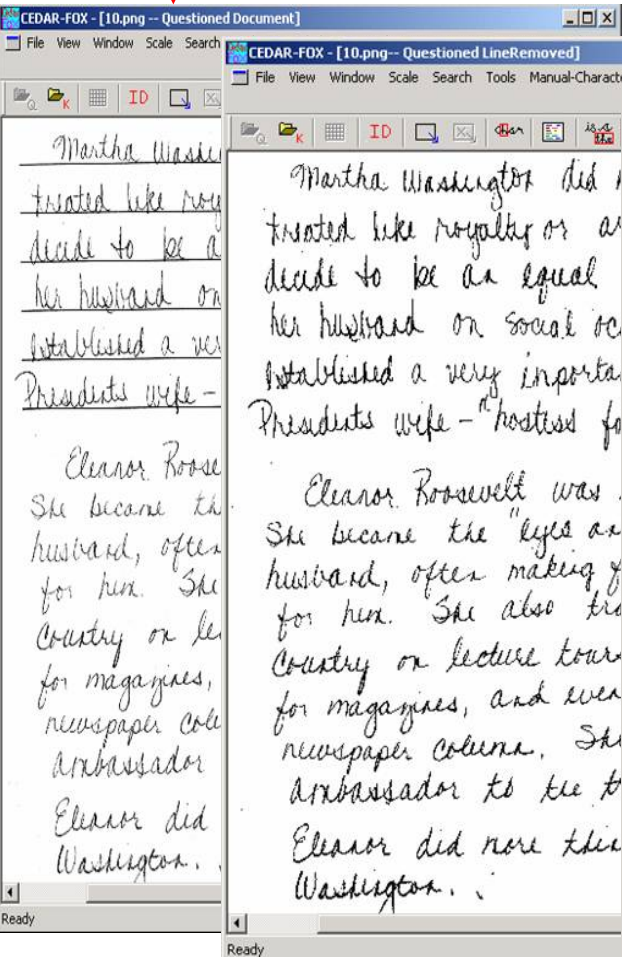 CEDAR-FOX - [10.png -- Questioned Document]
File View Window Scale Search
Q K ID
Martha Washi
treated like roya
decide to be a
her husband on
established a ver
Presidents wife -
Eleanor Roose
She became th
husband, often
for him. She
country on le
for magazines,
newspaper colu
ambassador
Eleanor did
Washington.
Ready
CEDAR-FOX - [10.png-- Questioned LineRemoved]
File View Window Scale Search Tools Manual-Characte
Q K ID char is a the
Martha Washington did n
treated like royalty or an
decide to be an equal
her husband on social oc
established a very importa
Presidents wife - "hostess fo
Eleanor Roosevelt was
She became the "eyes an
husband, often making f
for him. She also tra
country on lecture tours
for magazines, and even
newspaper column. She
ambassador to the
Eleanor did more than
Washington.
Ready